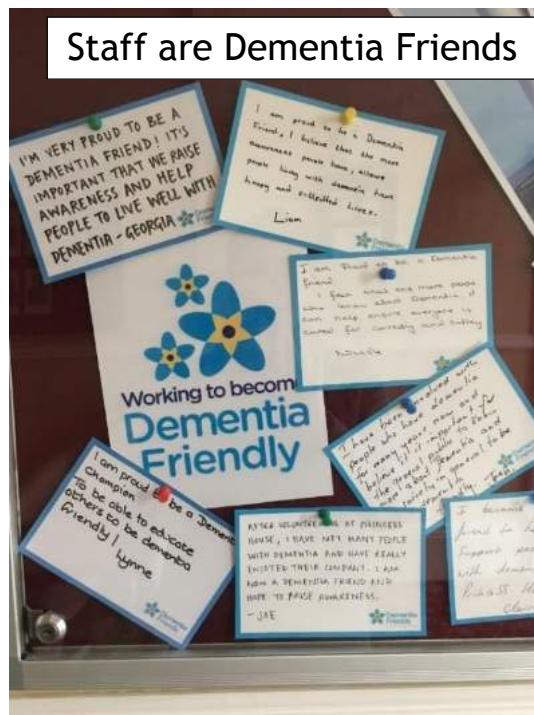 Staff are Dementia Friends
I'M VERY PROUD TO BE A
DEMENTIA FRIEND! IT'S
IMPORTANT THAT WE RAISE
AWARENESS AND HELP
PEOPLE TO LIVE WELL WITH
DEMENTIA - GEORGIA
I am proud to be a Dementia
Friend, I believe that the more
awareness people have, allows
people living with dementia have
happy and fulfilled lives.
Liam
Dementia
Friends
I am Proud to be a Dementia
friend
I feel that the more people
who know about Dementia, it
can help ensure everyone is
cared for correctly and safely
Working to becom
Dementia
Friendly
I have been involved with
people who have dementia
for many years now and
believe it is important for
the general public to know
more about dementia and
society in general to be
I am proud be a Demen
Champion
To be able to educate
others to be dementia
friendly!
Lynne
Dementia
Friends
AFTER VOLUNTEERING AT PRINCESS
HOUSE, I HAVE MET MANY PEOPLE
WITH DEMENTIA AND HAVE REALLY
ENJOYED THEIR COMPANY. I AM
NOW A DEMENTIA FRIEND AND
HOPE TO RAISE AWARENESS.
- JOE
Dementia
Friends
I became
friend to h
Support peo
with demen
Princess Ho
Clai